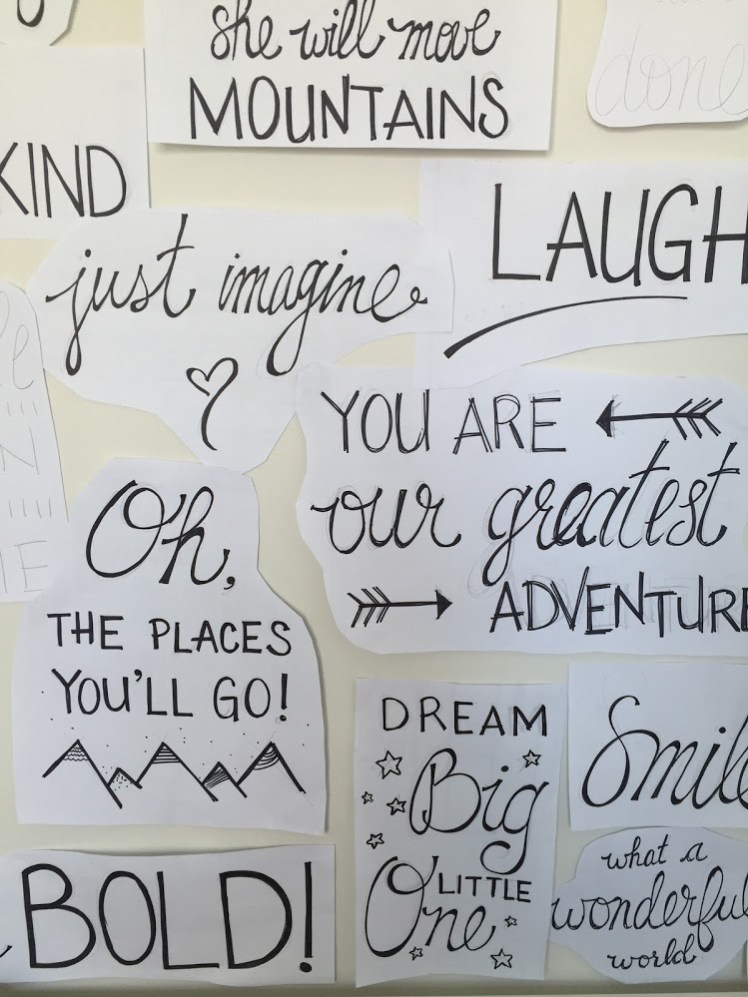 she will move
MOUNTAINS
done
KIND
LAUGH
just imagine
YOU ARE
our greatest
ADVENTURE
Oh,
THE PLACES
YOU'LL GO!
DREAM
Big
LITTLE
One
Smile
what a
wonderful
world
BOLD!